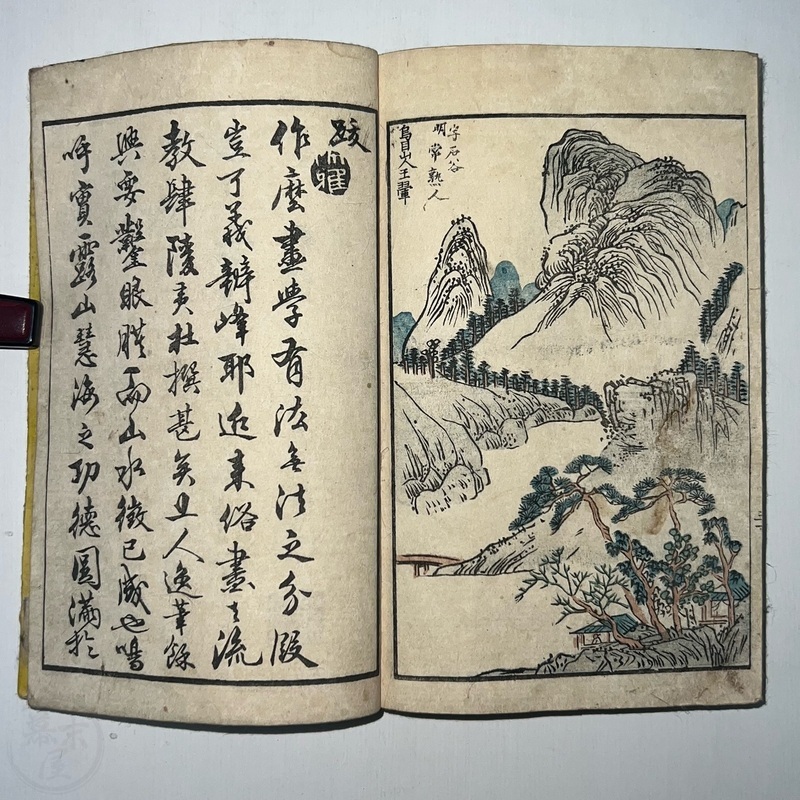 字石谷
明常熟人
烏目山人王翬
跋
作麼畫學有法無法之分段
豈了義辨峰耶近来俗畫之流
教肆陵夷杜撰甚矣且人逸筆餘
興要鑿眼膜而山水徵已成也嗚
呼寶露山慧海之功德圓滿於